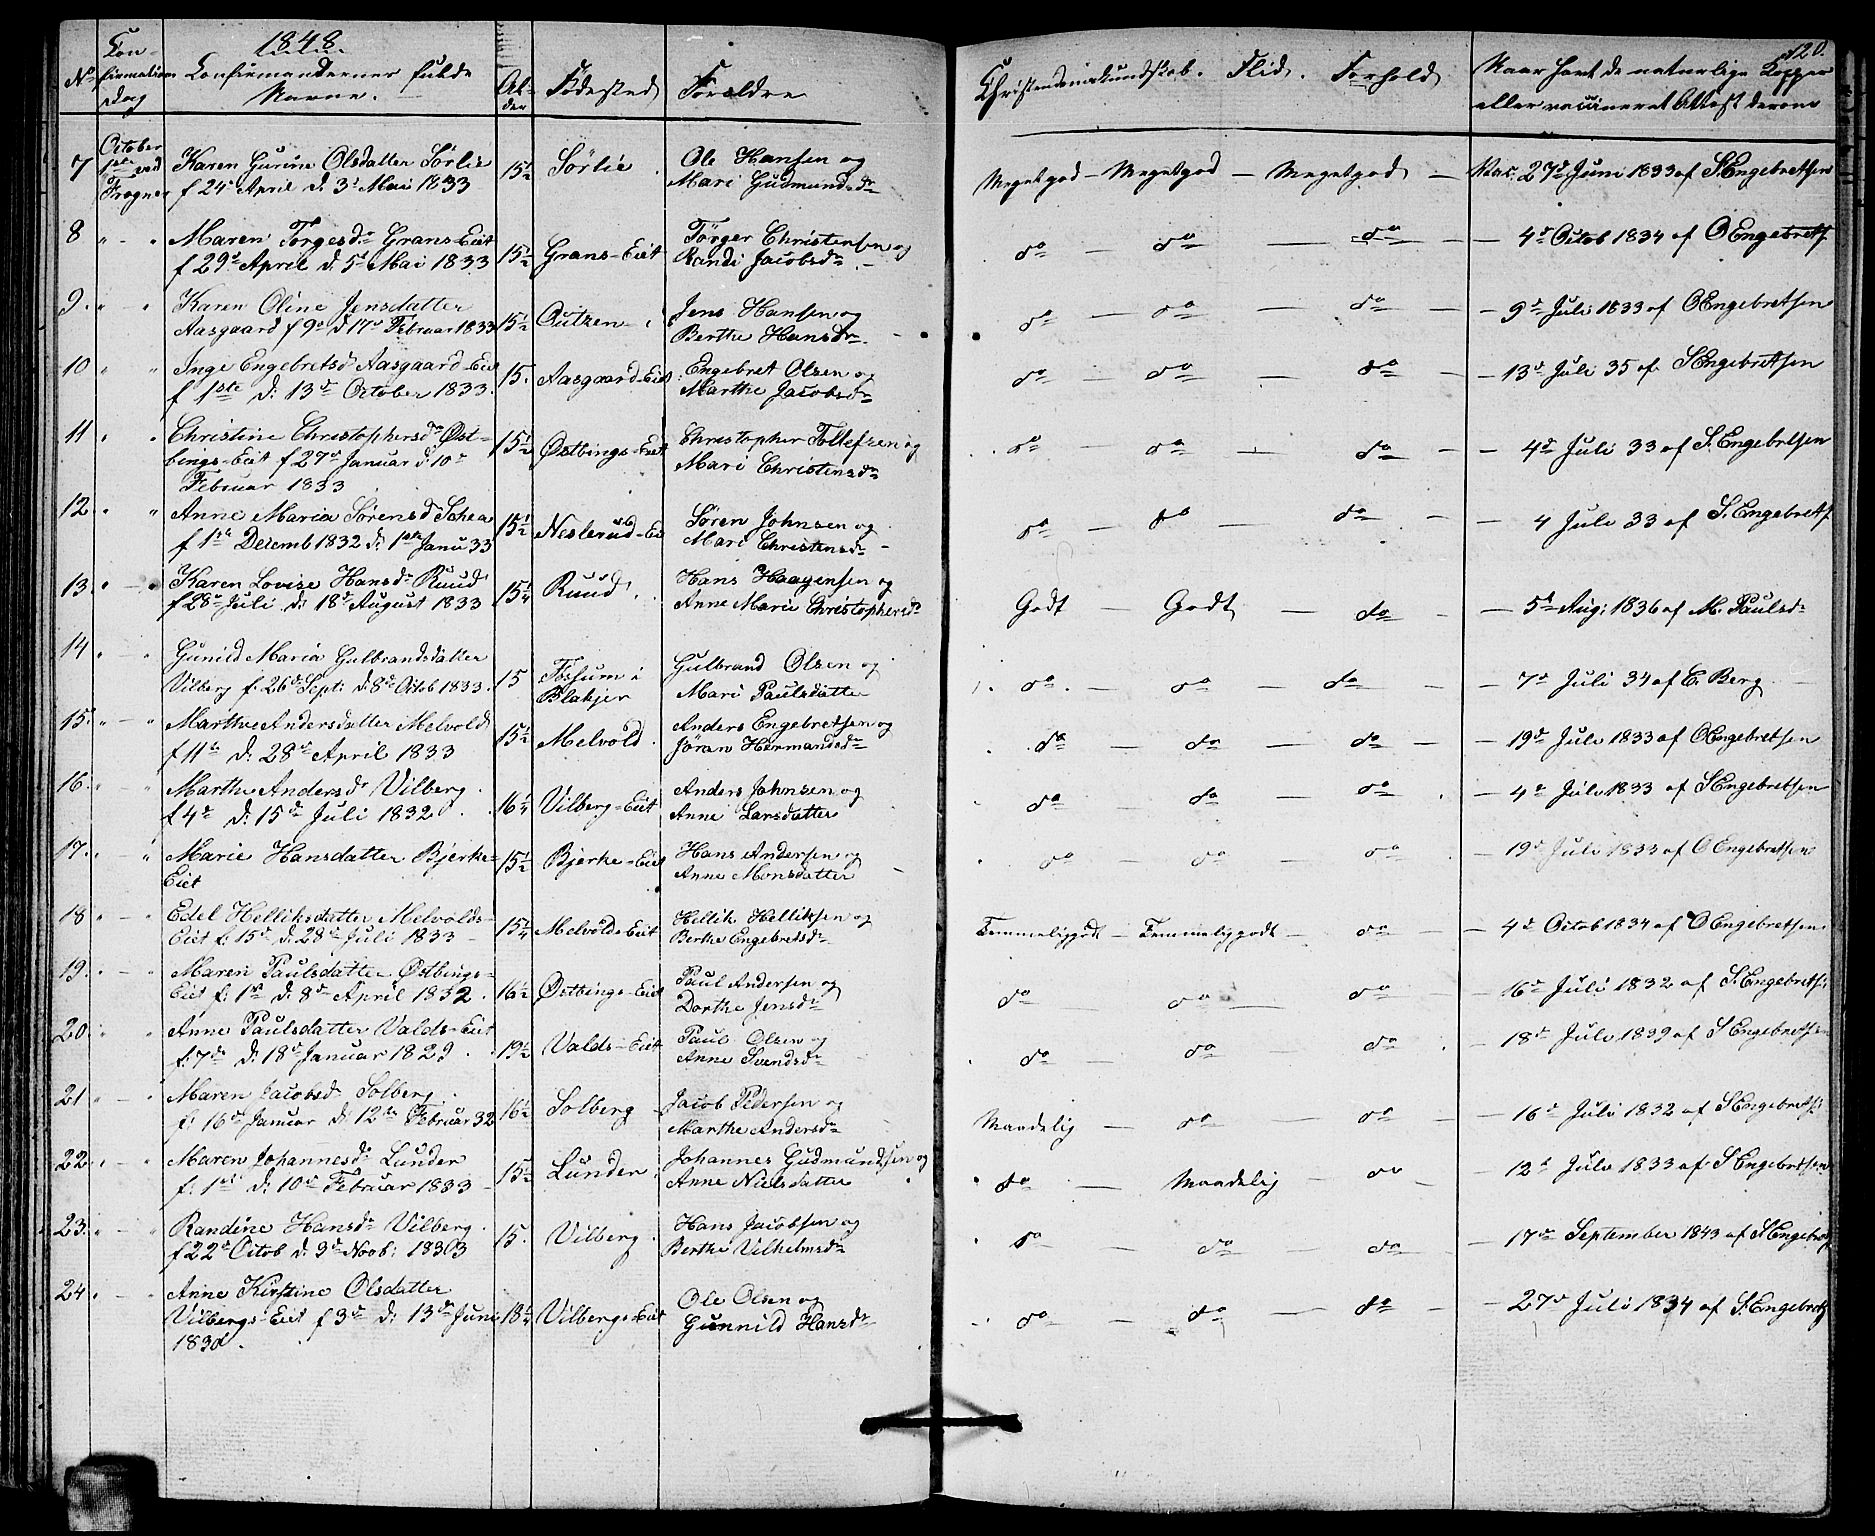 120.
1848
No
Con-
firmations
Dag
Confirmandernes fulde
Navne.
Al-
der
Fødested
Forældre
Christendomskundskab. Flid. Forhold
Naar havt de naturlige Kopper
eller vaccineret Attest derom
7 October 1ste ved Frogner Karen Gurine Olsdatter Sörlie 15½ Sörlie Ole Hansen og
f 24de April d. 3die Mai 1833 Mari Gudmundsdr
Megetgod – Megetgod – Megetgod – Vac. 27de Juni 1833 af S. Engebretsen
8 " – " Maren Torgesdr Grans-Eiet 15½ Grans-Eiet Törger Christensen og
f 29de April d. 5te Mai 1833 Randi Jacobsdr
do – do – do – 4de Octob 1834 af O Engebretsf
9. " – " Karen Oline Jensdatter 15½ Jens Hansen og
Aasgaard f 9de d 17de Februar 1833 Berthe Hansdr
do – do – do – 9de Juli 1833 af O Engebretsen
10 " " Inge Engebretsd Aasgaard-Eiet 15. Aasgaard-Eiet Engebret Olsen og
f 1ste d. 13de October 1833. Marthe Jacobsdr
do – do – do – 13de Juli 35 af S Engebretsen
11 " " Christine Christophersdr Øst- 15½ Østbings-Eiet Christopher Tollefsen og
bings-Eiet f 27de Januar d. 10de Mari Christensdr
Februar 1833
do – do – do – 4de Juli 33 af S. Engebretsen
12 " " Anne Maria Sörensd 15½ Neslerud-Ei Sören Johnsen og
f 1ste Decemb 1832 d. 1ste Janu 33 Mari Christensdr
do – do – do – 4 Juli 33 af S. Engebretsf
13. " " Karen Lovise Hansdr Ruud 15¼ Ruud. Hans Haagensen og
f 28de Juli d. 18de August 1833 Anne Marie Christophersdr
Godt – Godt – do – 5te Aug: 1836 af M. Paulsdr
14 " " Gunild Maria Gulbrandsdatter 15 Fossum i Gulbrand Olsen og
Vilberg f. 26de Sept: d. 8de Octob 1833. Blakjer Mari Paulsdatter
do – do – do – 7de Juli 34 af E. Berg
15. " – " Marthe Andersdatter Melvold 15½ Melvold. Anders Engebretsen og
f 11te d. 28de April 1833 Jöran Hermandsdr
do – do – do – 19de Juli 1833 af O Engebretsen
16. " " Marthe Andersd Vilberg. 16¼ Vilberg-Eiet Anders Johnsen og
f 4de d. 15de Juli 1832. Anne Larsdatter
do – do – do – 4de Juli 1833 af S Engebretsen
17. " " Marie Hansdatter Bjerke- 15½ Bjerke-Eiet Hans Andersen og
Eiet Anne Monsdatter
do – do – do – 19de Juli 1833 af O Engebretsen
18 " – " Edel Helliksdatter Melvolds- 15¼ Melvolds-Eiet Hellik Helliksen og
Eiet f. 15de d. 28de Juli 1833 Berthe Engebretsdr
Temmeliggodt – Temmeliggodt – do – 4de Octob 1834 af O Engebretsen
19. " – " Maren Paulsdatter Østbings- 16½ Østbings-Eiet Paul Andersen og
Eiet f. 1ste d. 8de April 1832. Dorthe Jensdr
do – do – do – 16de Juli 1832 af S. Engebrets:
20. " " Anne Paulsdatter Valds-Eiet 19½ Valds-Eiet Paul Olsen og
f. 7de d. 18de Januar 1829. Anne Svendsdr
do – do – do – 18de Juli 1839 af S Engebretsen
21 " – " Maren Jacobsd Solberg. 16½ Solberg Jacob Pedersen og
f. 16de Januar d. 12te Februar 32 Marthe Andersdr
Maadelig – do – do – 16de Juli 1832 af S Engebrets:
22. " " Maren Johannesdr Lunder 15½ Lunder. Johannes Gudmundsen og
f. 1ste d. 10de Februar 1833 Anne Nielsdatter
do – Maadelig – do – 12te Juli 1833 af S Engebretsen
23. " – " Randine Hansdr Vilberg. 15. Vilberg. Hans Jacobsen og
f 22de Octob d. 3de Novb: 1833 Berthe Vilhelmsdr
do – do – do – 17de September 1843 af S Engebrets
24. " – " Anne Kirstine Olsdatter 18¼ Vilbergs-Eiet Ole Olsen og
Vilbergs-Eiet f 3de d. 13de Juni Gunnild Hansdr
1830.
do – do – do – 27de Juli 1834 af S. Engebrets